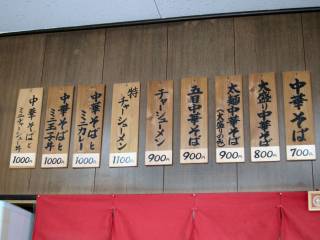 中華そば
700円
大盛り中華そば
800円
太麺中華そば
(大盛りのみ)
900円
五目中華そば
900円
チャーシューメン
900円
特チャーシューメン
1100円
中華そばと
ミニカレー
1000円
中華そばと
ミニ玉子丼
1000円
中華そばと
ミニチャーシュー丼
1000円